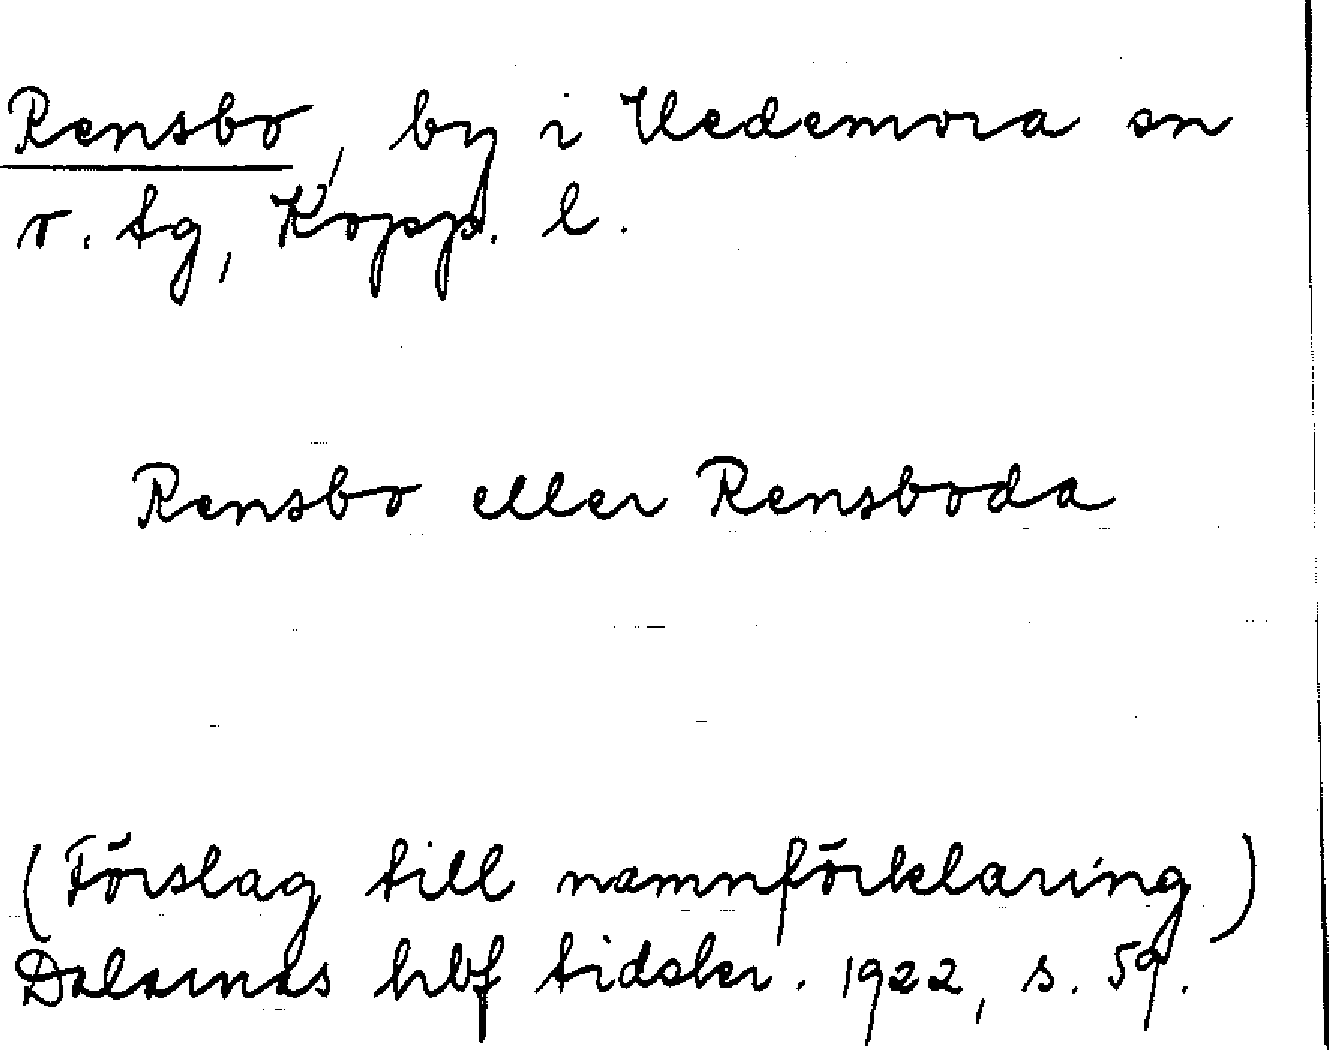 Rensbo, by i Hedemora sn
v. tg, Kopp. l.
Rensbo eller Rensboda
(Förslag till namnförklaring)
Dalarnas hbf tidskr. 1922, s. 59.